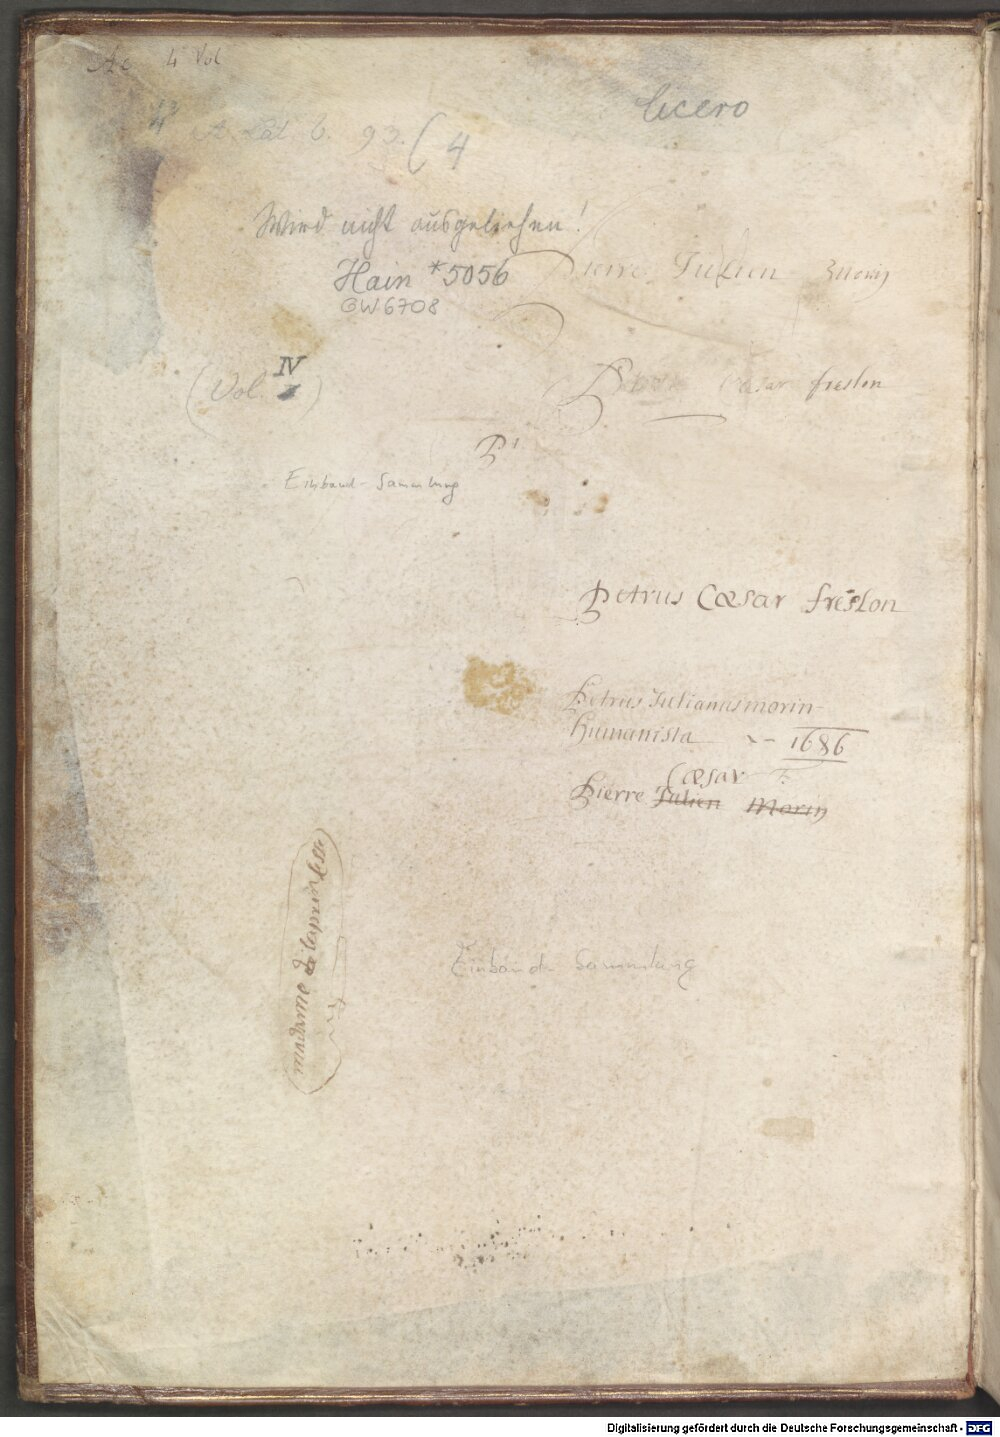 Ac 4 Vol
Cicero
4° A. Lat. b. 93. (4
Wird nicht ausgeliehen!
Hain *5056
GW6708
Pierre Julien Morin
(Vol. IV)
Caesar freslon
P
Einband-Sammlung
Petrus Cæsar freslon
Petrus Julianus morin
humanista -- 1686
Cæsar
Pierre Julien Morin
madame de la princesse
Einband Sammlung
Digitalisierung gefördert durch die Deutsche Forschungsgemeinschaft - DFG